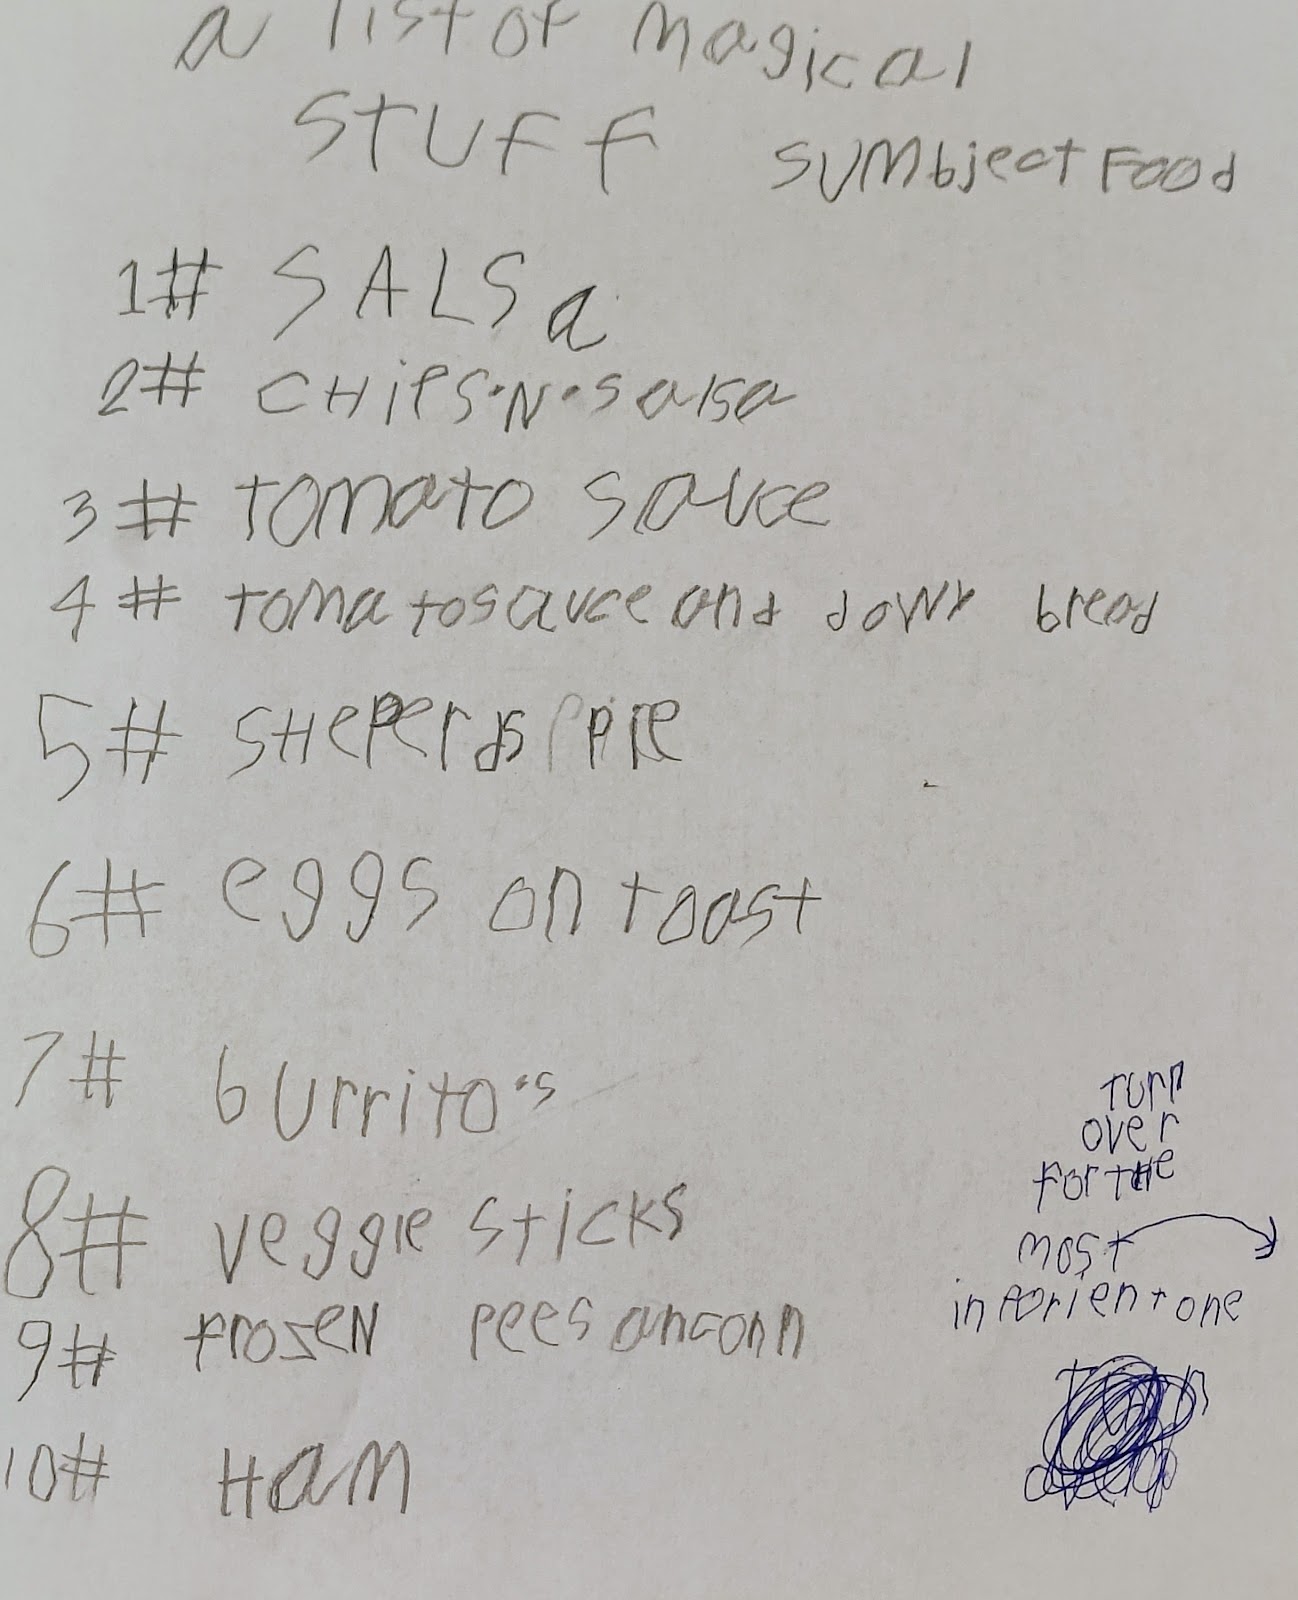 a list of magical
STUFF sumbject Food
1# SALSa
2# CHiPS·N·Salsa
3# Tomato sauce
4# Tomato sauce and dowy bread
5# SHePerds pie
6# eggs on toast
7# burrito's
8# veggie sticks
9# frozeN pees anconn
10# Ham
turn
over
for the
most
inporient one